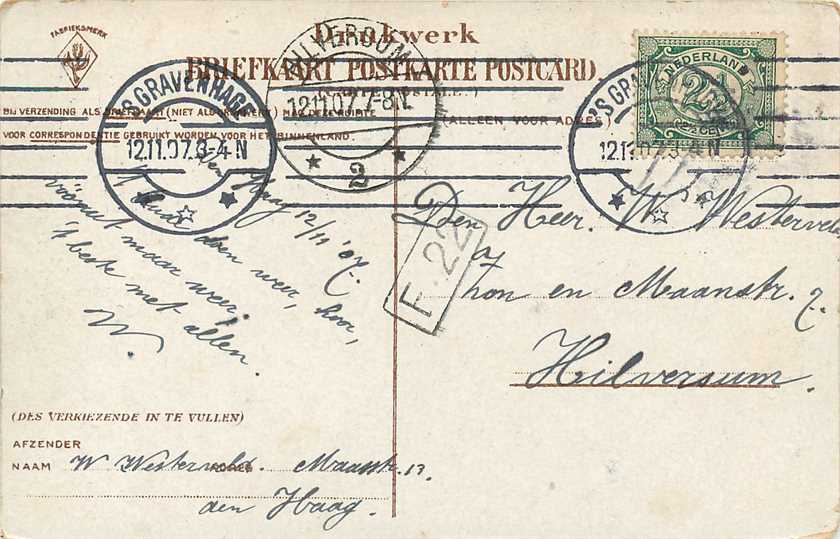 FABRIEKSMERK
Drukwerk
BRIEFKAART POSTKARTE POSTCARD.
BIJ VERZENDING ALS BRIEFKAART (NIET ALS DRUKWERK) MAG DEZE RUIMTE
VOOR CORRESPONDENTIE GEBRUIKT WORDEN VOOR HET BINNENLAND.
(ALLEEN VOOR ADRES)
'S GRAVENHAGE
12.11.07.3-4 N
HILVERSUM
12.11.07.7-8N.
2
NEDERLAND
2½
CENT
'S GRA
12.11.07.3-4 N
den Haag 12/11 '07.
weer, hoor,
vooruit maar weer!
'k beste met allen.
W.
F. 22
Den Heer W Westerveld
a/
Zon en Maanstr. 7.
Hilversum.
(DES VERKIEZENDE IN TE VULLEN)
AFZENDER
NAAM W Westerveld. ADRES Maasstr. 13.
den Haag.